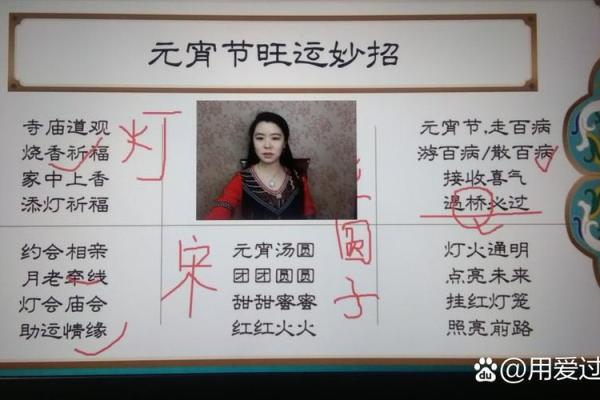 元宵节旺运妙招
寺庙道观
烧香祈福
家中上香
添灯祈福
灯
元宵节,走百病
游百病/散百病
接收喜气
遇桥必过
约会相亲
月老牵线
灯会庙会
助运情缘
宋
元宵汤圆
团团圆圆
甜甜蜜蜜
红红火火
圆
子
灯火通明
点亮未来
挂红灯笼
照亮前路
Bai du @用爱过